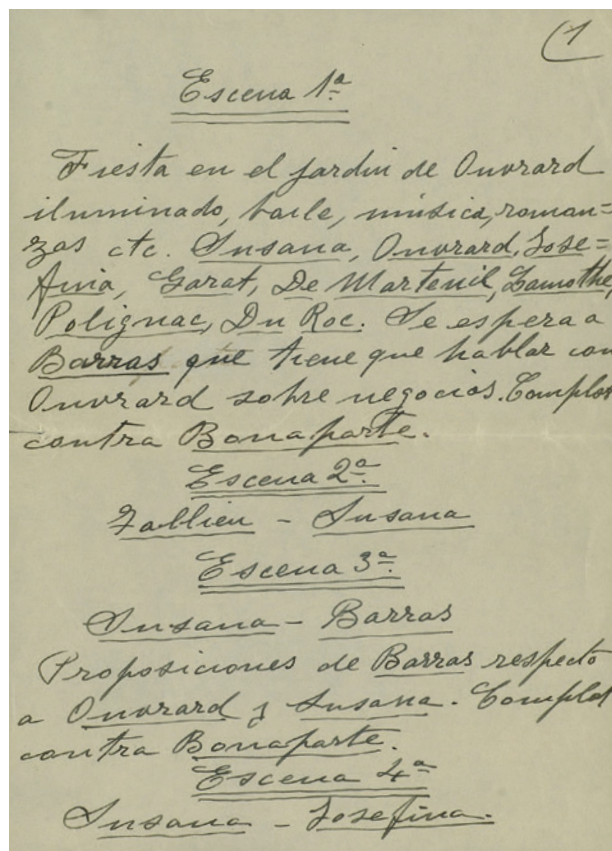 (1
Escena 1ª
Fiesta en el jardin de Ouvrard
iluminado, baile, música, roman-
zas etc. Susana, Ouvrard, Jose=
fina, Garat, De Marteuil, Lamothe,
Polignac, Du Roc. Se espera a
Barras que tiene que hablar con
Ouvrard sobre negocios. Complot
contra Bonaparte.
Escena 2ª
Tallien - Susana
Escena 3ª
Susana - Barras
Proposiciones de Barras respecto
a Ouvrard y Susana. Complot
contra Bonaparte.
Escena 4ª
Susana - Josefina.